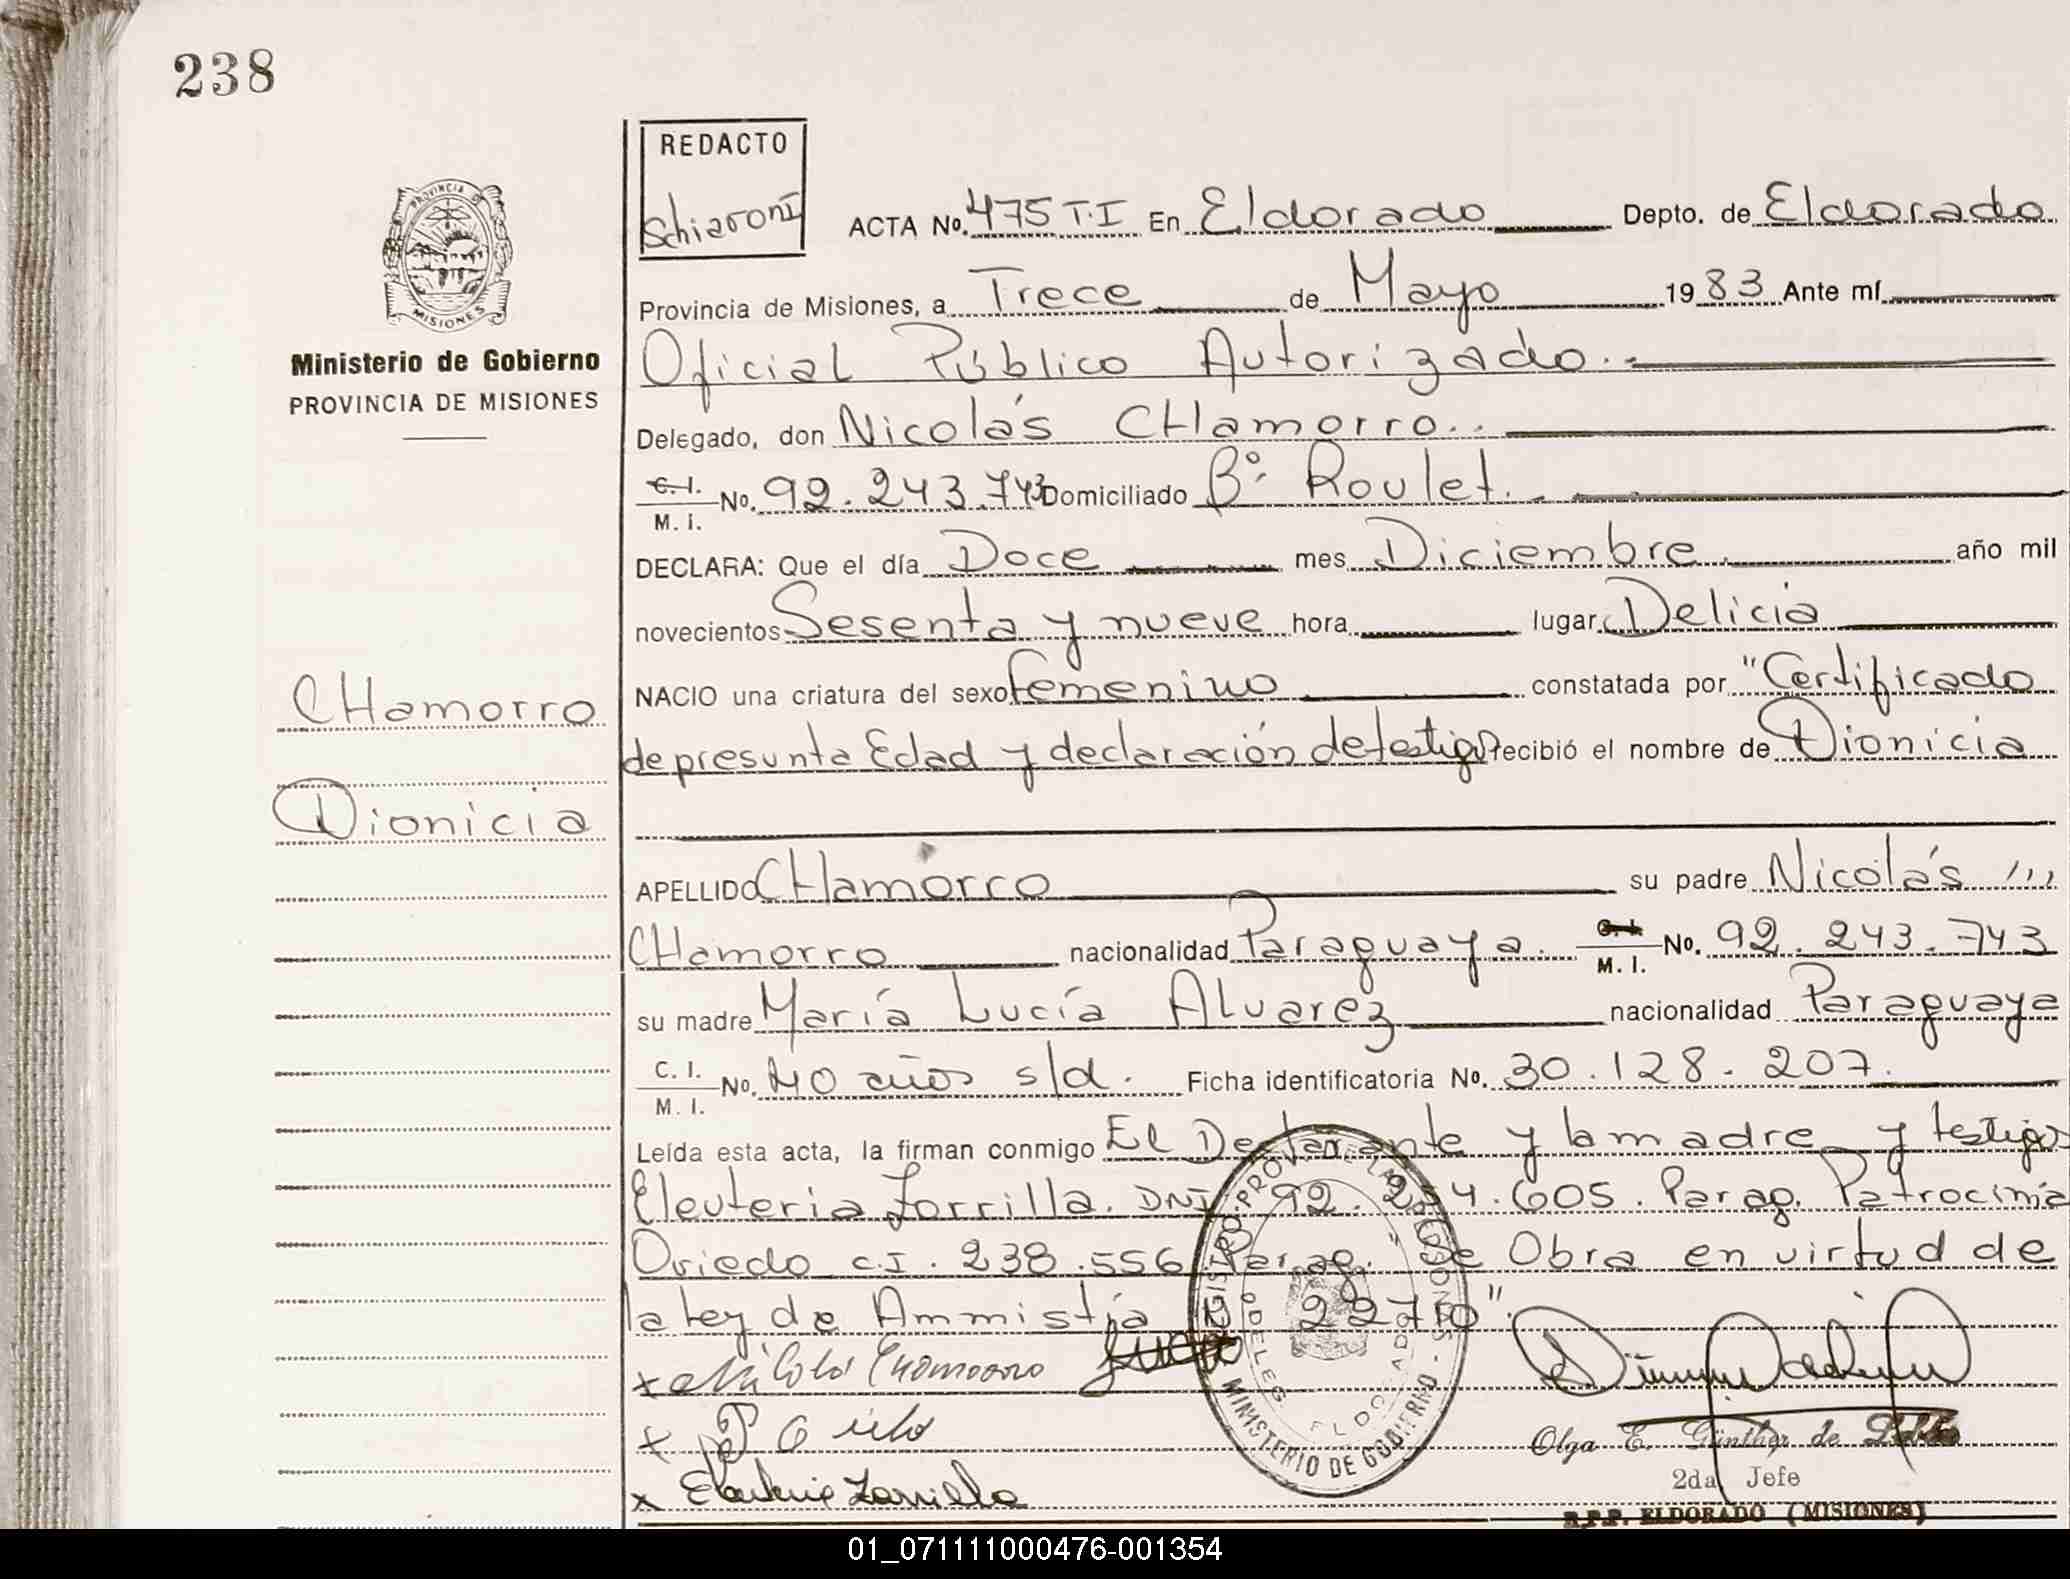 238
REDACTO
Schiaroni
PROVINCIA DE
MISIONES
Ministerio de Gobierno
PROVINCIA DE MISIONES
ACTA No. 475 T.I En Eldorado Depto. de Eldorado
Provincia de Misiones, a Trece de Mayo 1983 Ante mí
Oficial Público Autorizado..
Delegado, don Nicolás CHamorro..
C. I. M. I. No. 92.243.743 Domiciliado Bº. Roulet.
DECLARA: Que el día Doce mes Diciembre. año mil
novecientos Sesenta y nueve hora lugar Delicia
NACIO una criatura del sexo femenino constatada por "Certificado
de presunta Edad y declaración de testigos recibió el nombre de Dionicia
CHamorro
Dionicia
APELLIDO CHamorro su padre Nicolás
CHamorro nacionalidad Paraguaya. C. I. M. I. No. 92.243.743
su madre María Lucía Alvarez nacionalidad Paraguaya
C. I. M. I. No. 40 años s/d. Ficha identificatoria No. 30.128.207.
Leída esta acta, la firman conmigo El Declarante y la madre y testigos
Eleuteria Zorrilla. DNI 92.254.605. Parag. Patrocinia
Oviedo C.I. 238.556 Parag. "Se Obra en virtud de
la Ley de Ammistía 22710".
x Nicolá Chamorro
x
x Eleuteria Zorrilla
MINISTERIO DE GOBIERNO
ELDORADO
Olga E. Günther de
2da Jefe
R.P.P. ELDORADO (MISIONES)
01_071111000476-001354